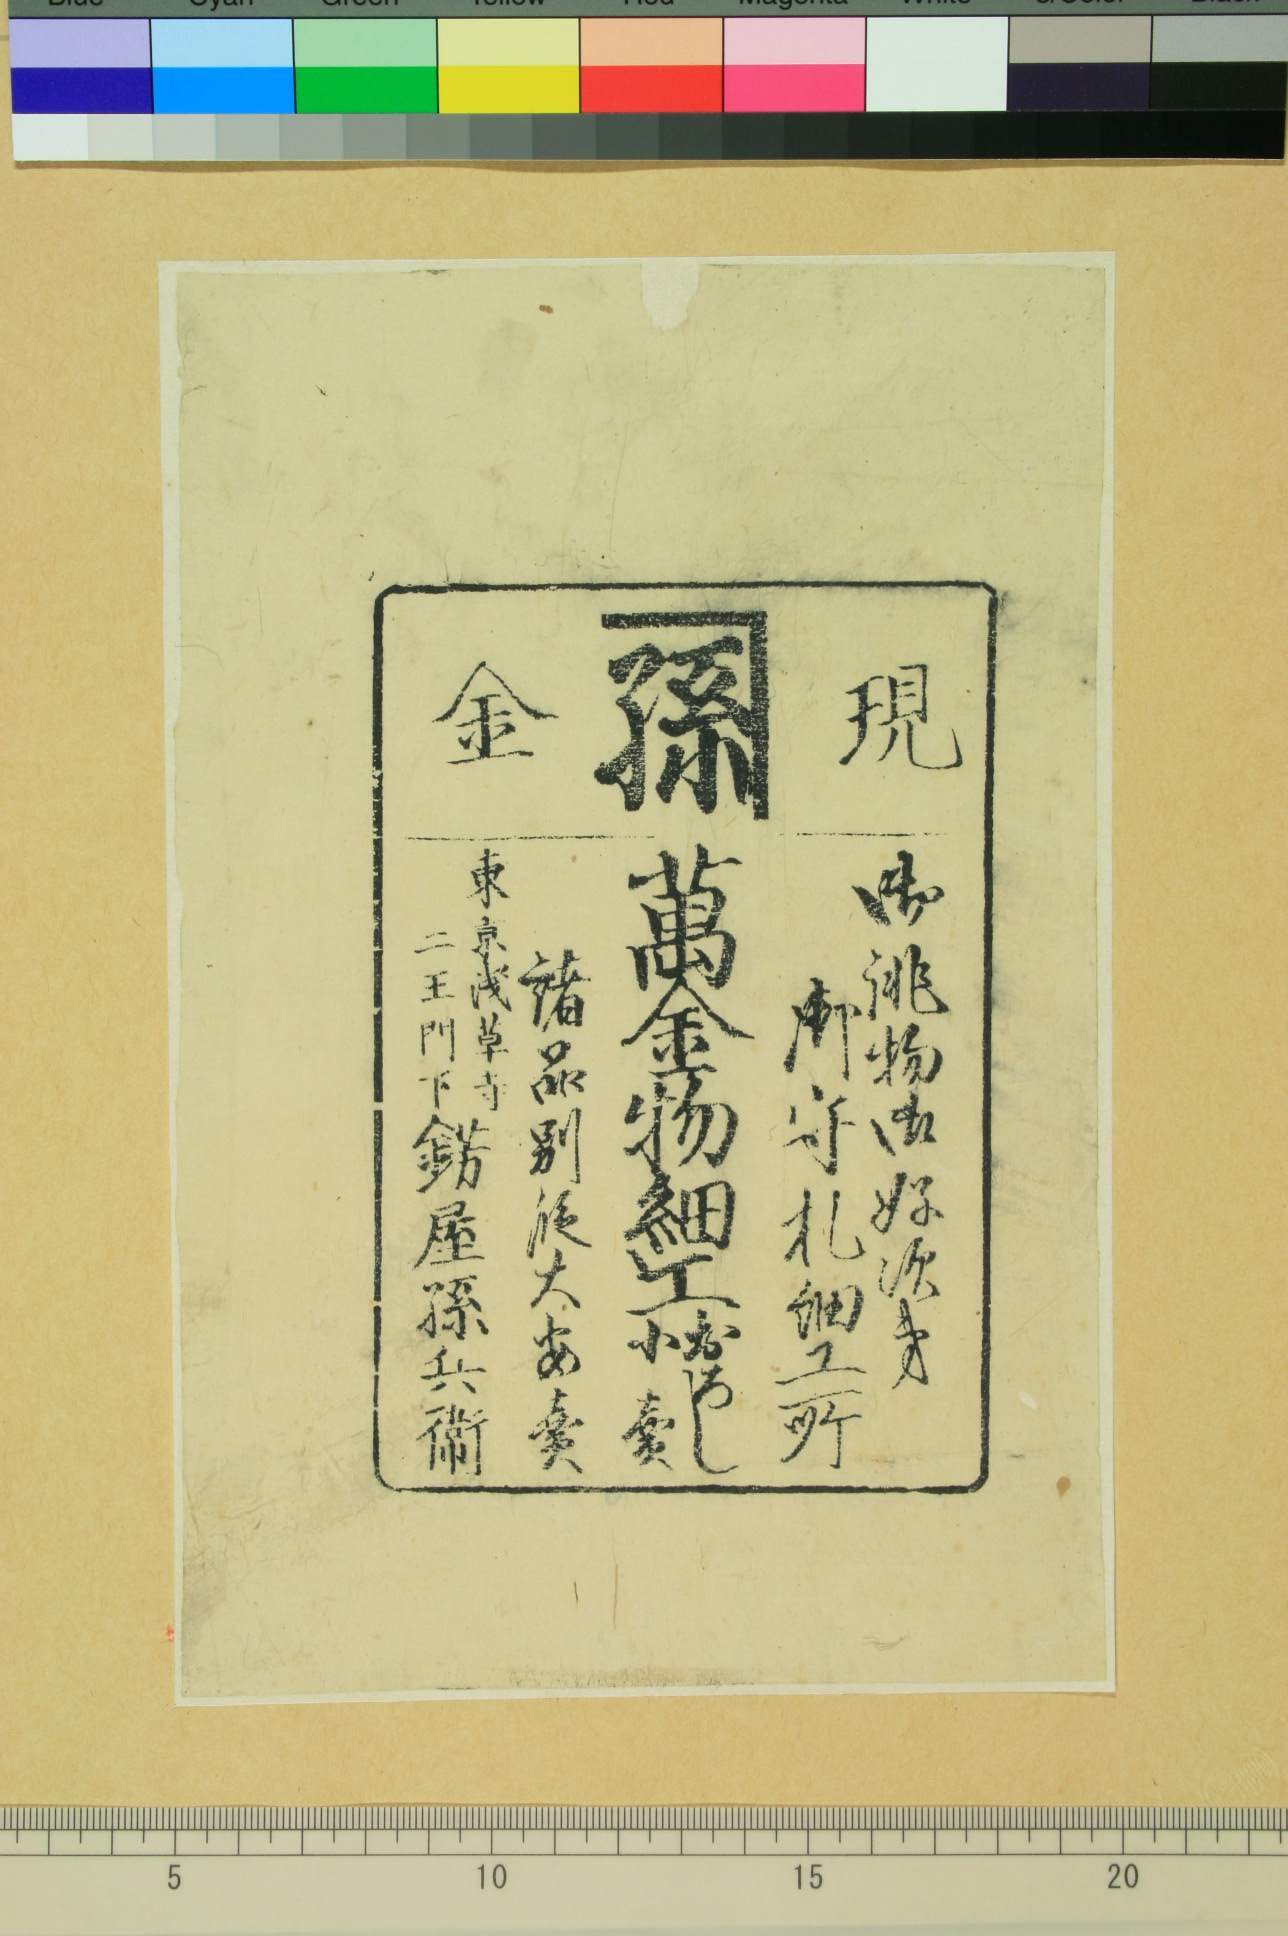 Blue Cyan Green Yellow Red Magenta White 3/Color Black
現
孫
金
御誂物御好次第
御守札細工所
萬金物細工
おろし
小賣
諸品別段大安賣
東京浅草寺
二王門下
錺屋孫兵衛
5 10 15 20